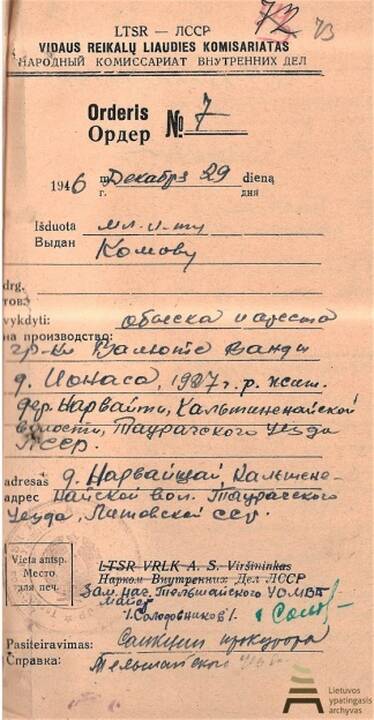 72 73
LTSR — ЛССР
VIDAUS REIKALŲ LIAUDIES KOMISARIATAS
НАРОДНЫЙ КОМИССАРИАТ ВНУТРЕННИХ ДЕЛ
Orderis
Ордер № 7
1946 m. Декабря 29 dieną
г. дня
Išduota мл. л-ту
Выдан Комову
drg.
тов.
vykdyti: обыска и ареста
на производство:
гр-ки Валюте Ванди
д. Йонаса, 1927 г. р. жит.
дер. Нарвайти, Кальтиненайской
волости, Таурагского уезда
ЛССР.
adresas д. Нарвайщай, Кальтене-
адрес найской вол. Таурагского
уезда, Литовской ССР.
Vieta antsp.
Место
для печ.
LTSR VRLK A. S. Viršininkas
Нарком Внутренних Дел ЛССР
Зам. нач. Тельшайского УОМВД
майор
/.Солодовников/.
Pasiteiravimas: Санкции прокурора
Справка: Тельшайского
Lietuvos
ypatingasis
archyvas